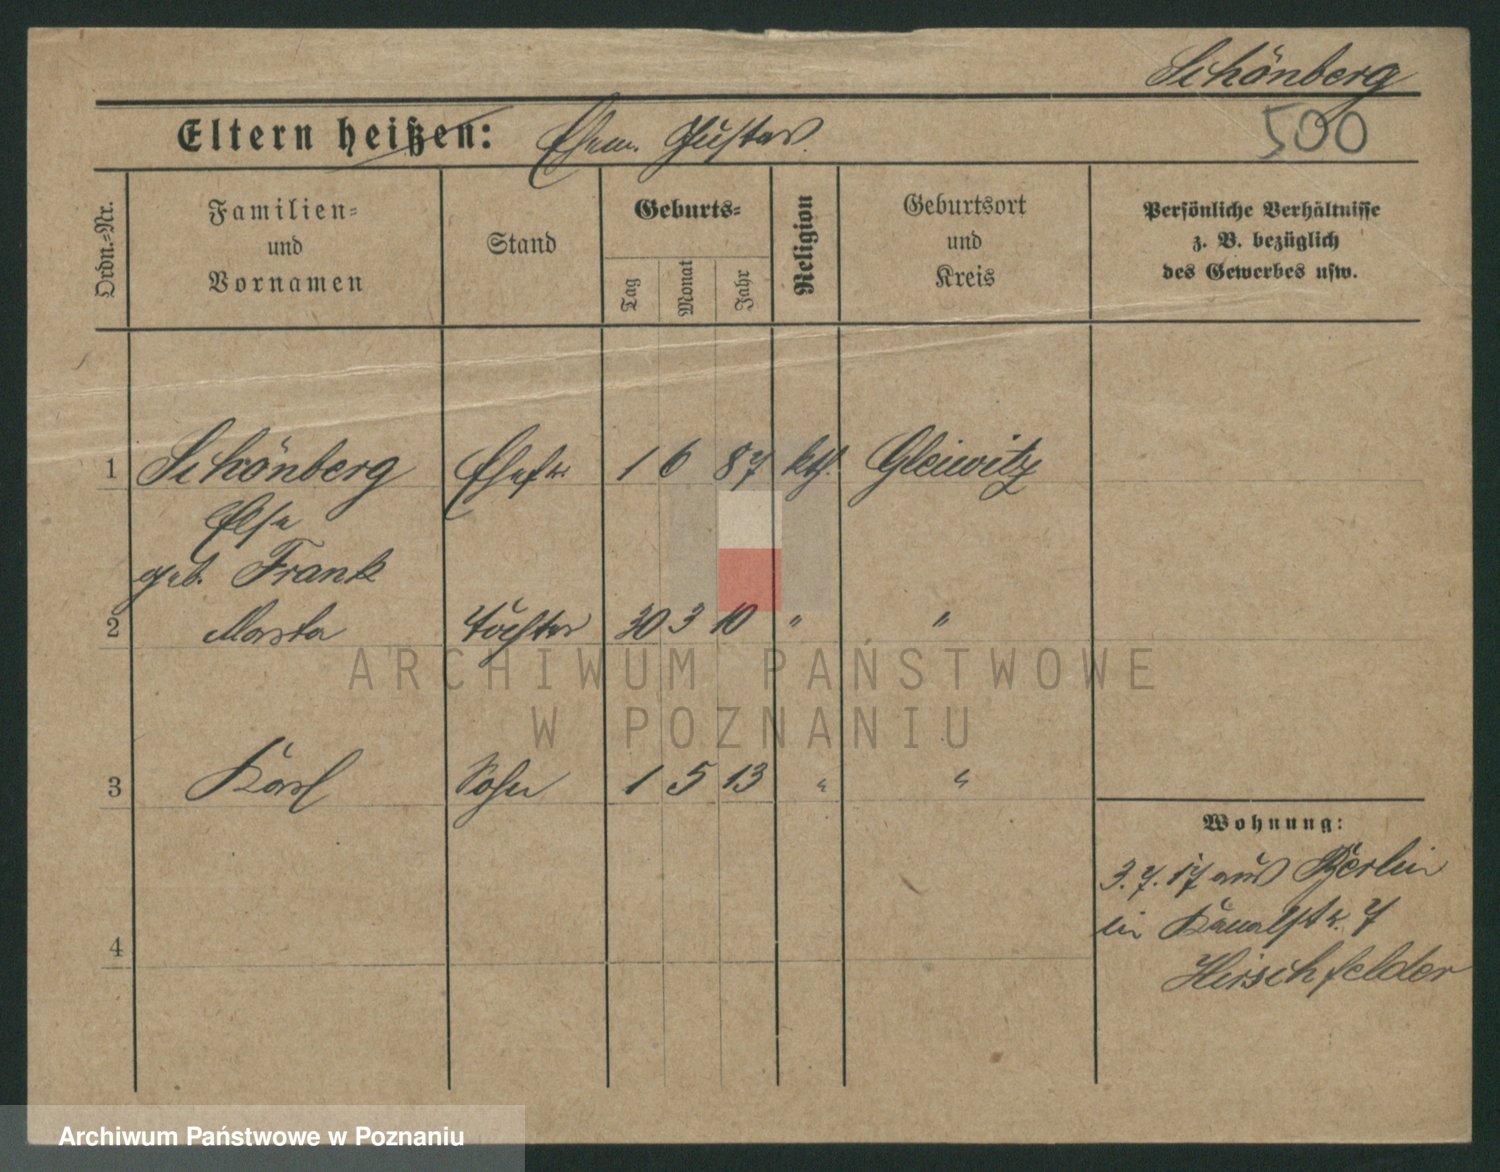 Schönberg
500
Eltern heißen: Ehem. Gustav.
Ordn.=Nr.
Familien=
und
Vornamen
Stand
Geburts=
Tag
Monat
Jahr
Religion
Geburtsort
und
Kreis
Persönliche Verhältnisse
z. B. bezüglich
des Gewerbes usw.
1 Schönberg Ehefr. 1 6 87 kth. Gleiwitz
Else
geb. Frank
2 Tochter 30 3 10 " "
ARCHIWUM PAŃSTWOWE
W POZNANIU
3 Karl Sohn 1 5 13 " "
Wohnung:
3. 7. 17 aus Berlin
in Kanalstr. 7
Hirschfelder
4
Archiwum Państwowe w Poznaniu